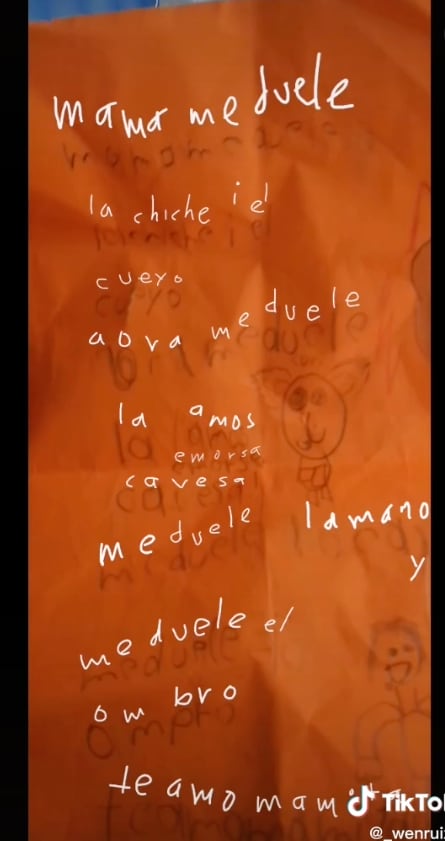 mama me duele
la chiche i el
cueyo
aora me duele
la amos
emorsa
cavesa
me duele la mano
y
me duele el
ombro
te amo mamita
TikTok
@_wenrui